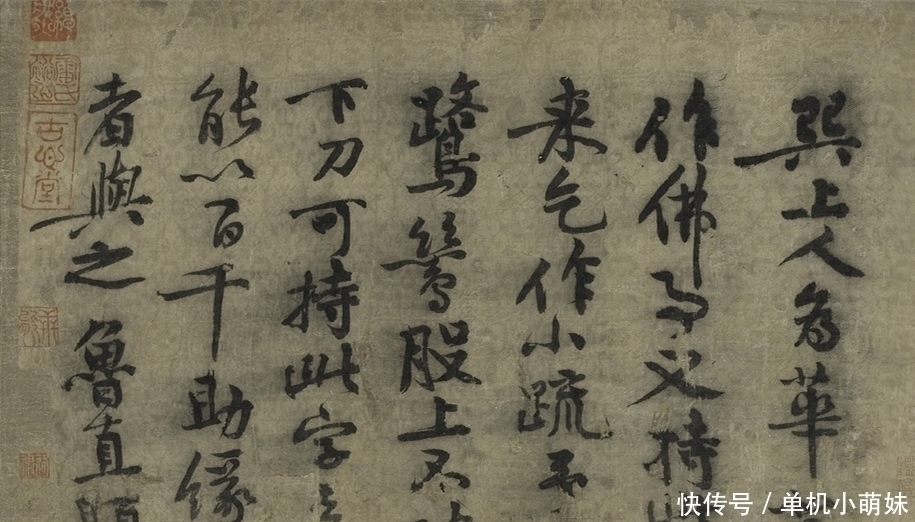 巽上人為華
作佛事父持
来乞作小疏
鷺鷥股上不
下刀可持此字
能以百千助緣
者與之 魯直
古心堂
快传号 / 单机小萌妹